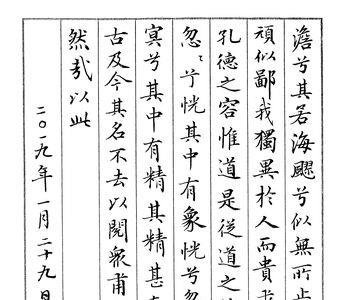 澹兮其若海飂兮似無所止
頑似鄙我獨異於人而貴
孔德之容惟道是從道之
忽兮恍其中有象恍兮忽
冥兮其中有精其精甚
古及今其名不去以閱眾甫
然哉以此
二〇一九年一月二十九日